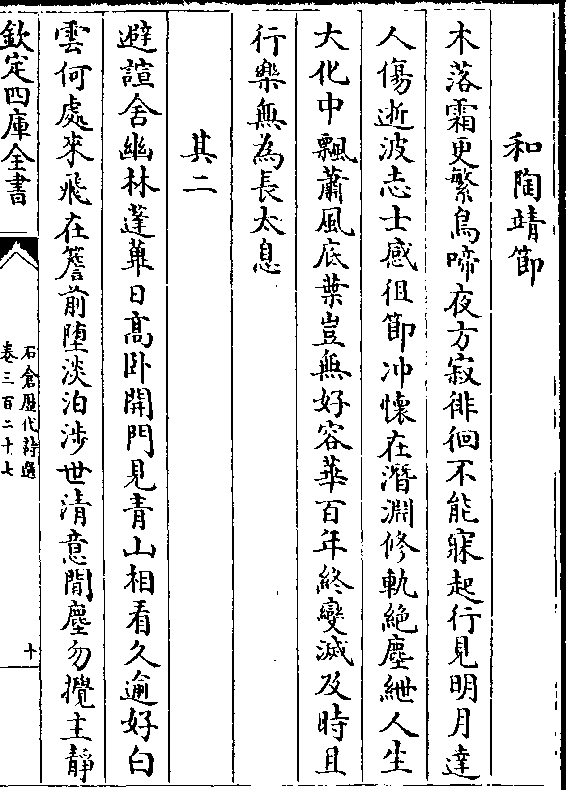 和陶靖節
木落霜更繁鳥啼夜方寂徘徊不能寐起行見明月達
人傷逝波志士感徂節冲懷在潛淵修軌絶塵紲人生
大化中飄蕭風底葉豈無好容華百年終變滅及時且
行樂無為長太息
其二
避諠舍幽林蓬蓽日髙卧開門見青山相看久逾好白
雲何處來飛在簷前墮淡泊涉世清意閒塵勿攪主靜
欽定四庫全書
石倉歴代詩選
卷三百二十七
十